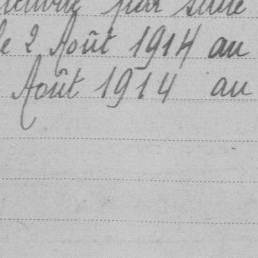 par suite
le 2 Août 1914 au
Août 1914 au